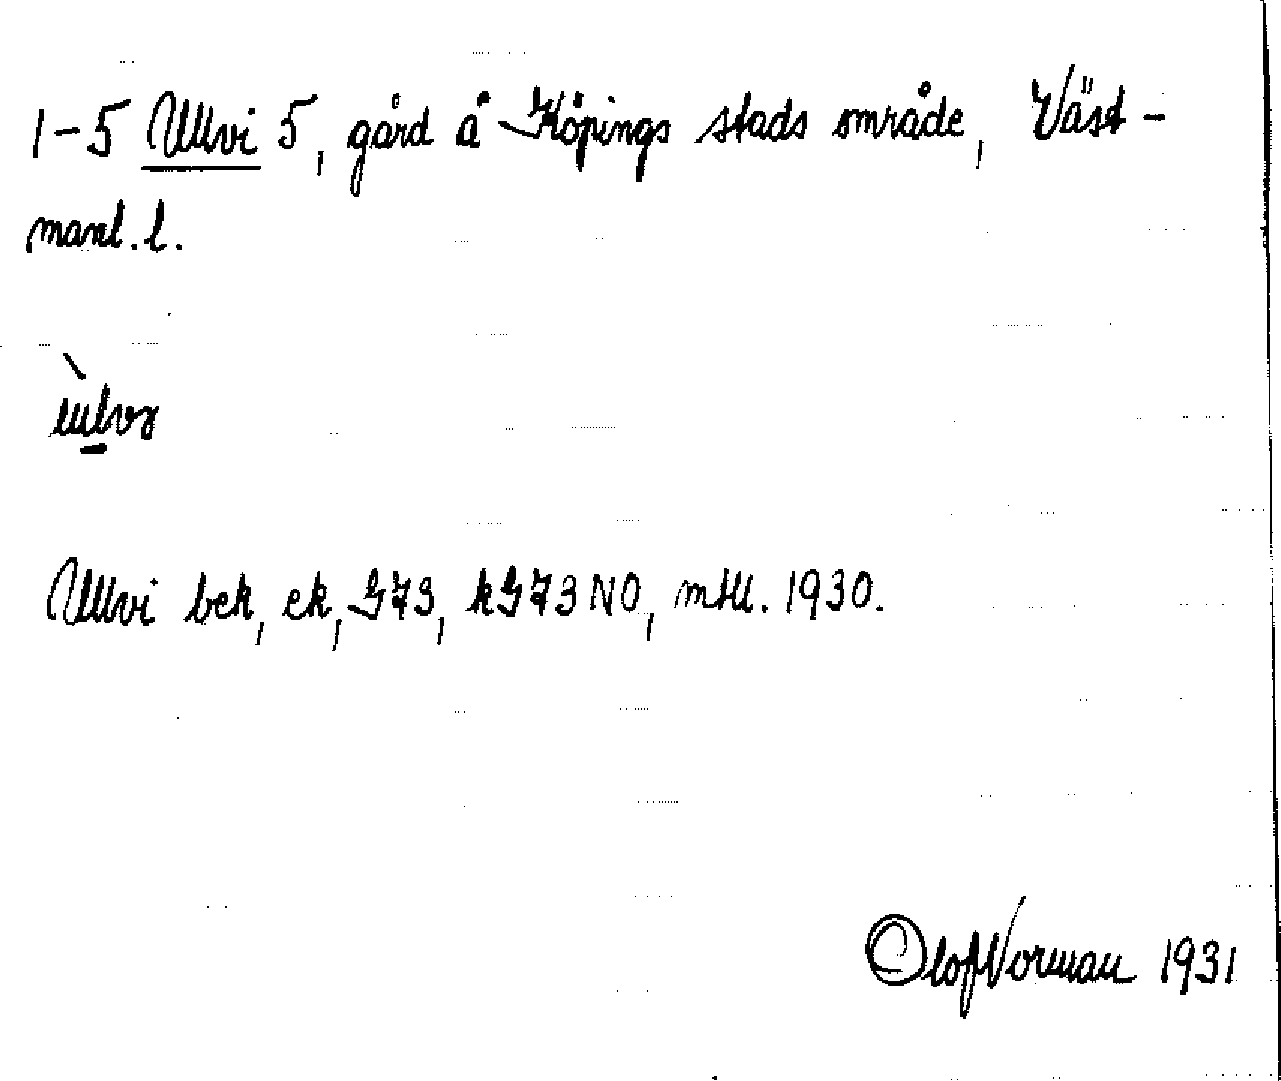 1-5 Ullvi 5, gård å Köpings stads område, Väst-
manl. l.
Ullvi bek, ek, G73, kG73 NO, mtll. 1930.
Olof Norman 1931